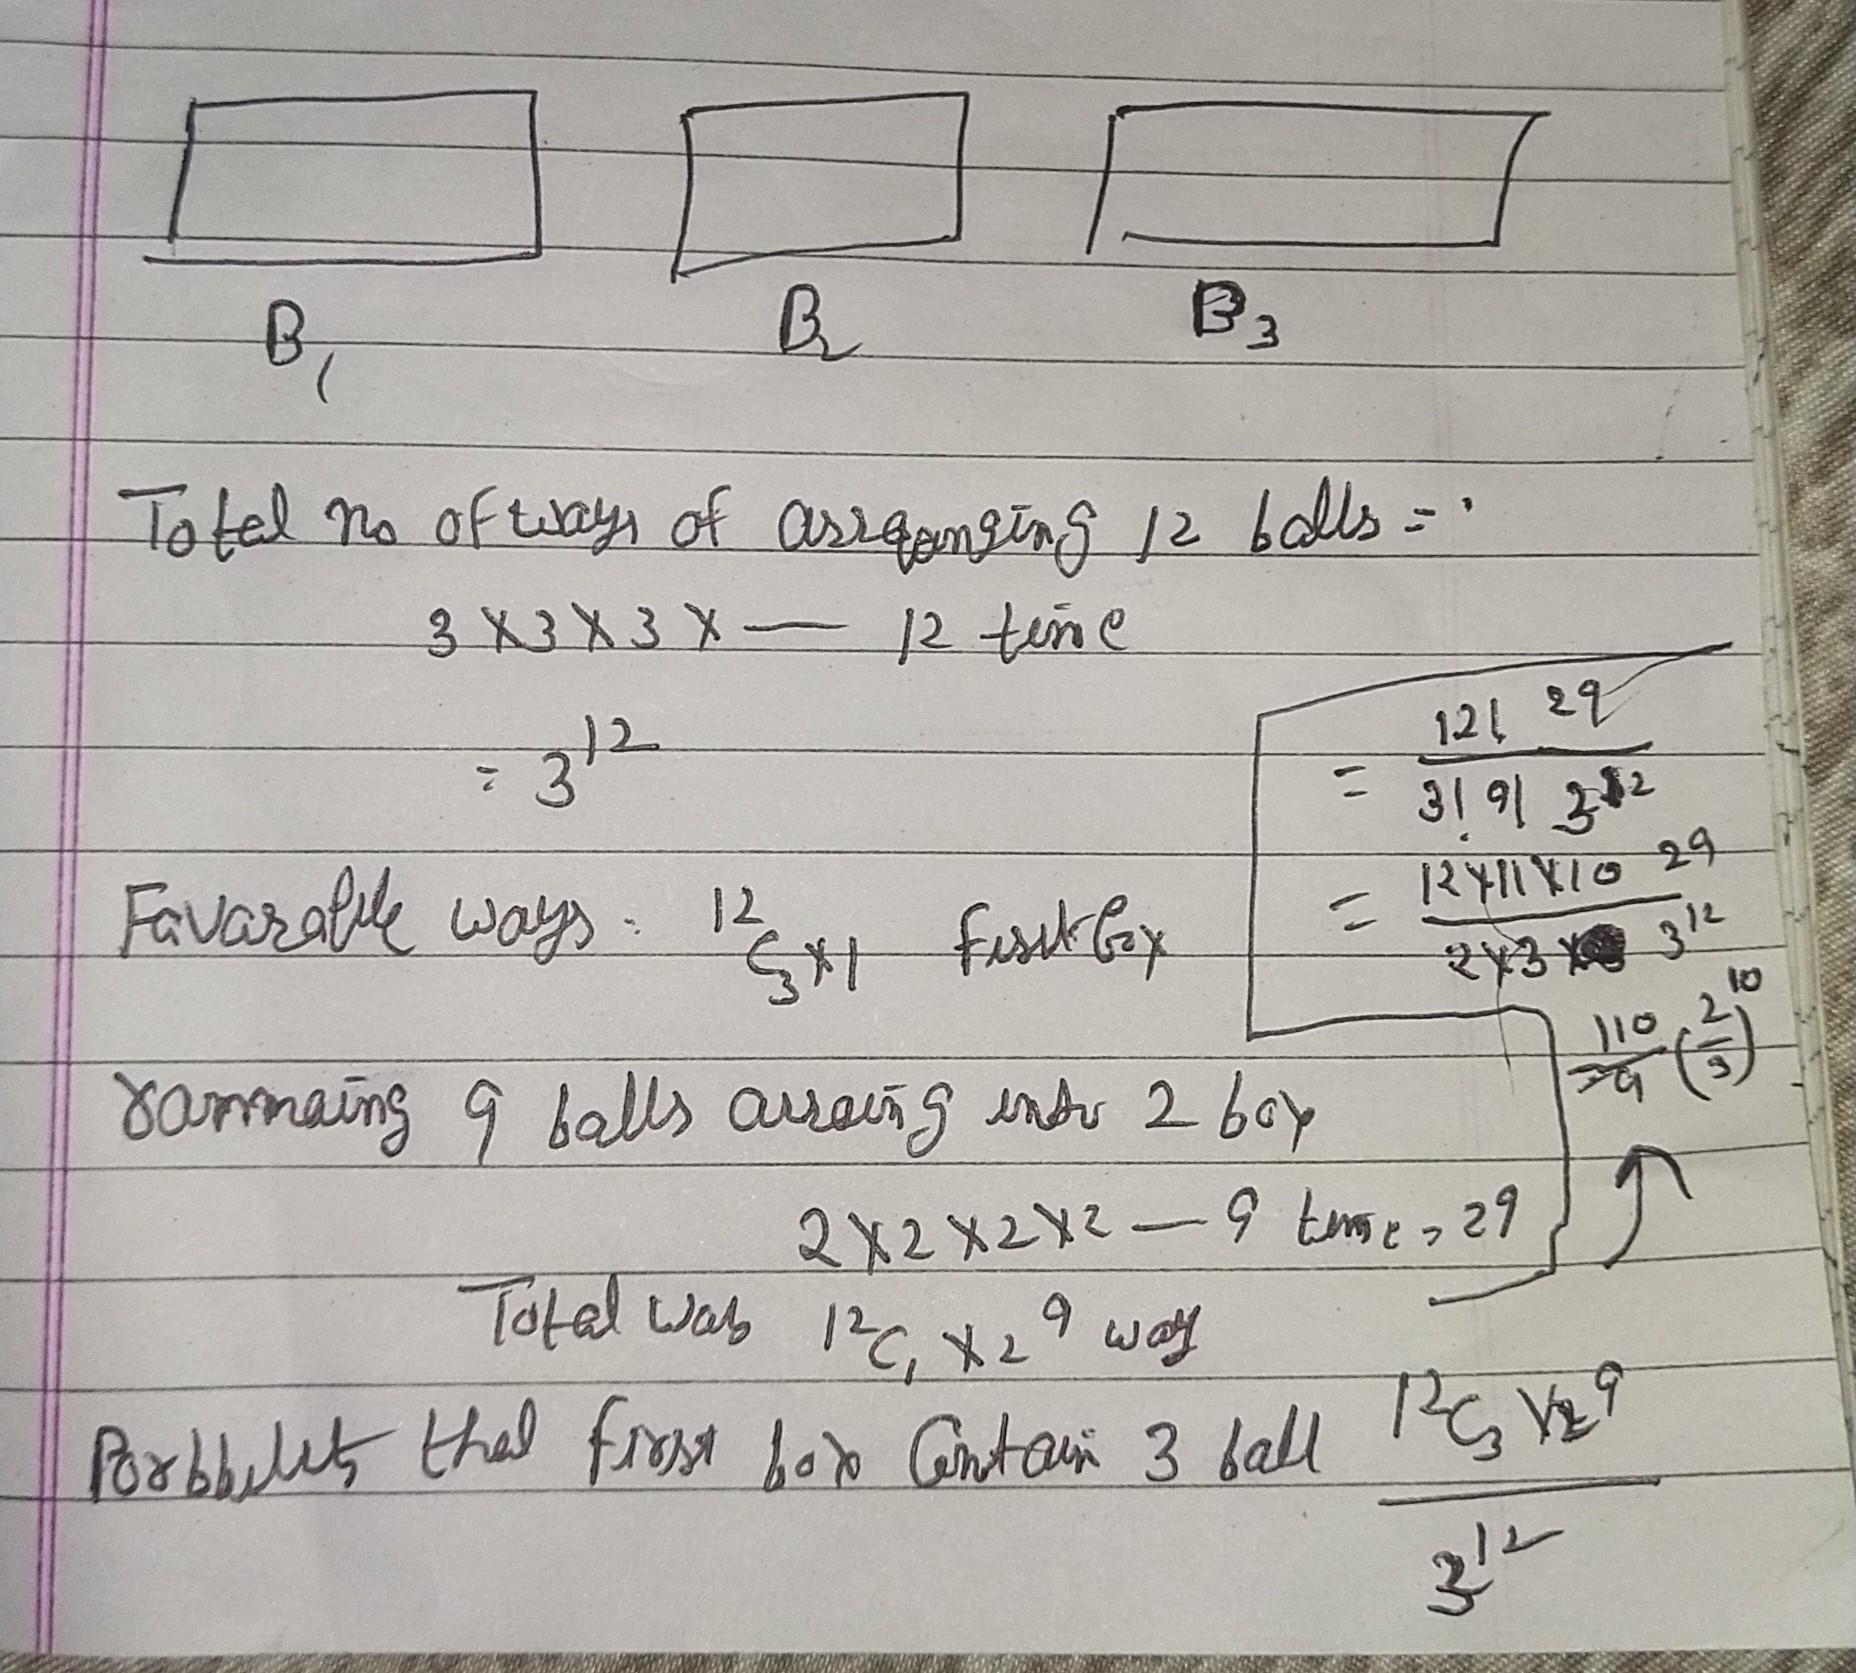 B₁ B₂ B₃
Total no of ways of arranging 12 balls =
3 × 3 × 3 × — 12 time
= 3¹²
Favarable ways. ¹²C₃ × 1 first box
rammaing 9 balls arraing into 2 box
2 × 2 × 2 × 2 — 9 time = 2⁹
Total was ¹²C₁ × 2⁹ way
Porbbilits that first box Contain 3 ball ¹²C₃ × 2⁹ / 3¹²
= 12! 2⁹ / 3! 9! 3¹²
= 12×11×10 2⁹ / 2×3 × 3¹²
= 110/9 (2/3)¹⁰